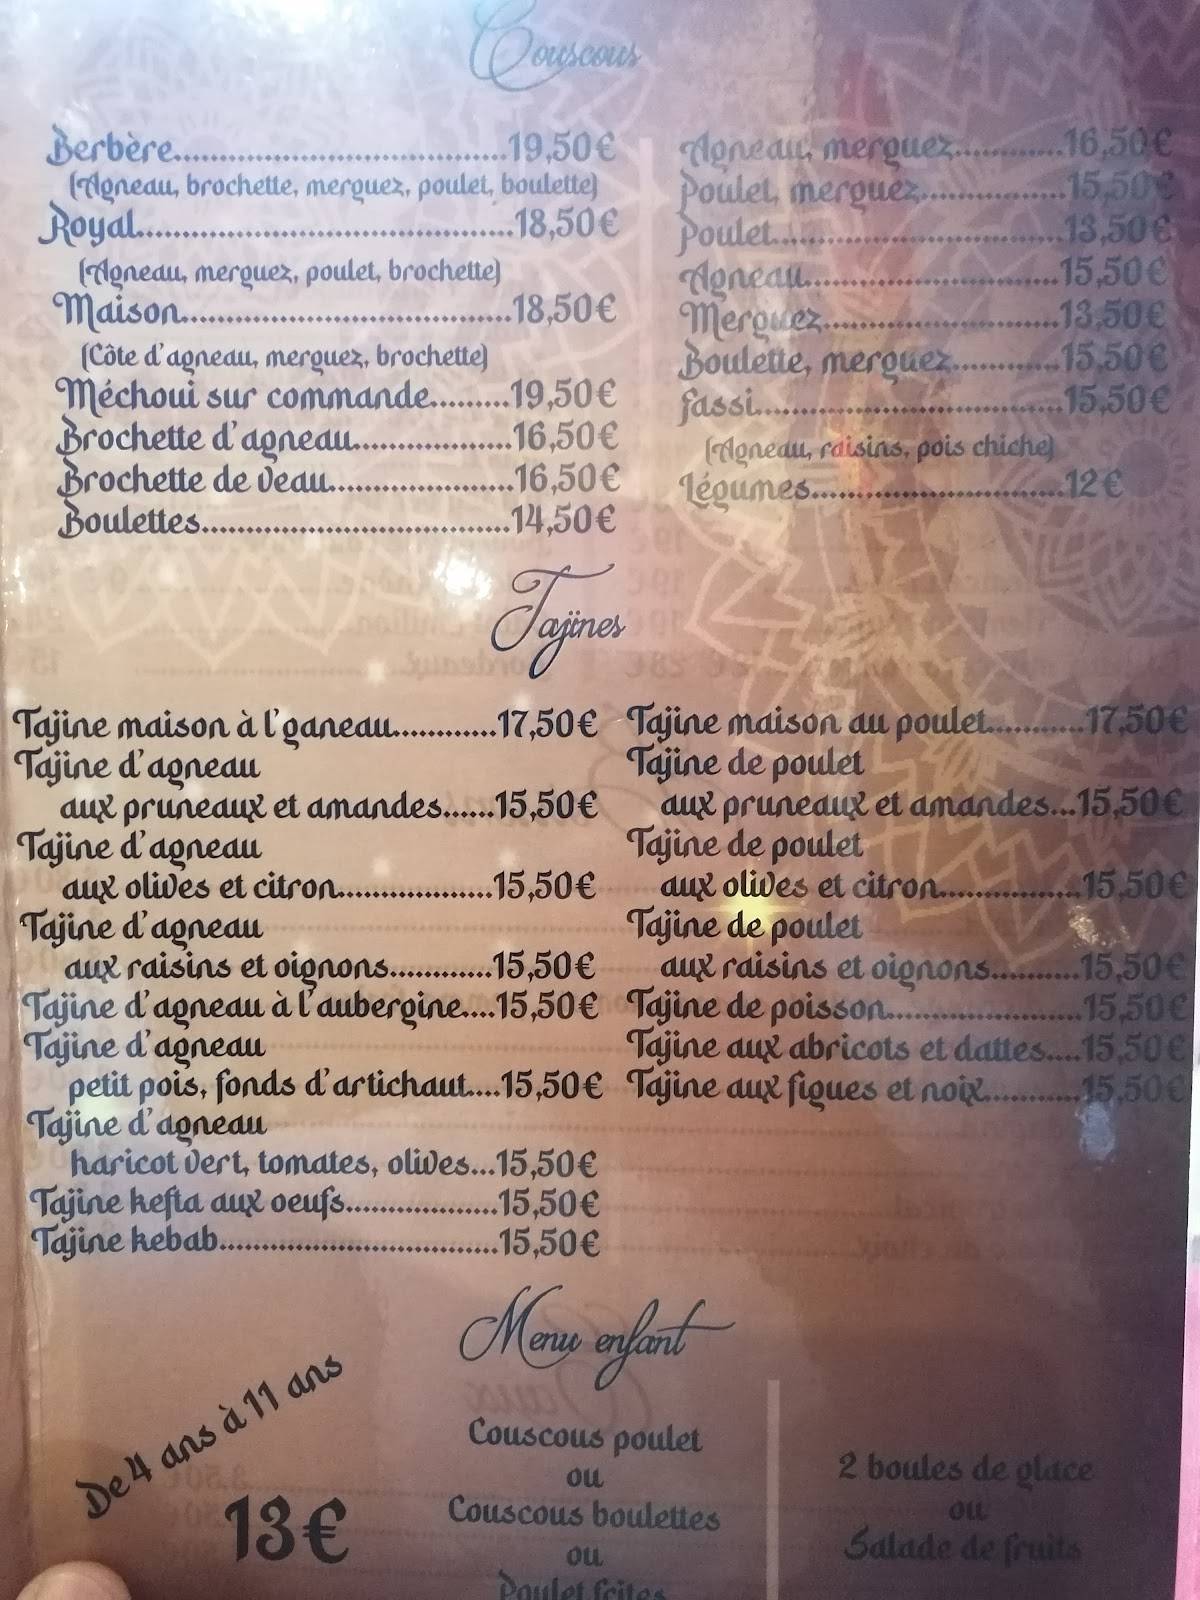 Couscous
Berbère.................................19,50€
(Agneau, brochette, merguez, poulet, boulette)
Royal.....................................18,50€
(Agneau, merguez, poulet, brochette)
Maison.................................18,50€
(Côte d'agneau, merguez, brochette)
Méchoui sur commande.........19,50€
Brochette d'agneau................16,50€
Brochette de veau...................16,50€
Boulettes...............................14,50€
Agneau, merguez............16,50€
Poulet, merguez...............15,50€
Poulet.............................13,50€
Agneau..........................15,50€
Merguez........................13,50€
Boulette, merguez...........15,50€
Fassi...............................15,50€
(Agneau, raisins, pois chiche)
Légumes..........................12€
Tajines
Tajine maison à l'ganeau............17,50€
Tajine d'agneau
aux pruneaux et amandes......15,50€
Tajine d'agneau
aux olives et citron..................15,50€
Tajine d'agneau
aux raisins et oignons............15,50€
Tajine d'agneau à l'aubergine....15,50€
Tajine d'agneau
petit pois, fonds d'artichaut....15,50€
Tajine d'agneau
haricot vert, tomates, olives...15,50€
Tajine kefta aux oeufs..................15,50€
Tajine kebab.................................15,50€
Tajine maison au poulet...........17,50€
Tajine de poulet
aux pruneaux et amandes...15,50€
Tajine de poulet
aux olives et citron................15,50€
Tajine de poulet
aux raisins et oignons..........15,50€
Tajine de poisson.......................15,50€
Tajine aux abricots et dattes....15,50€
Tajine aux figues et noix...........15,50€
Menu enfant
De 4 ans à 11 ans
13€
Couscous poulet
ou
Couscous boulettes
ou
Poulet frites
2 boules de glace
ou
Salade de fruits